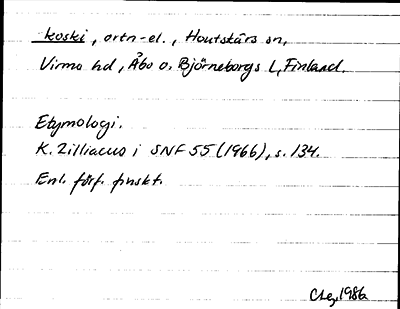 koski, ortn-el., Houtskärs sn,
Virmo hd, Åbo o. Björneborgs L, Finland.
Etymologi.
K. Zilliacus i SNF 55 (1966), s. 134.
Enl. förf. finskt.
1986